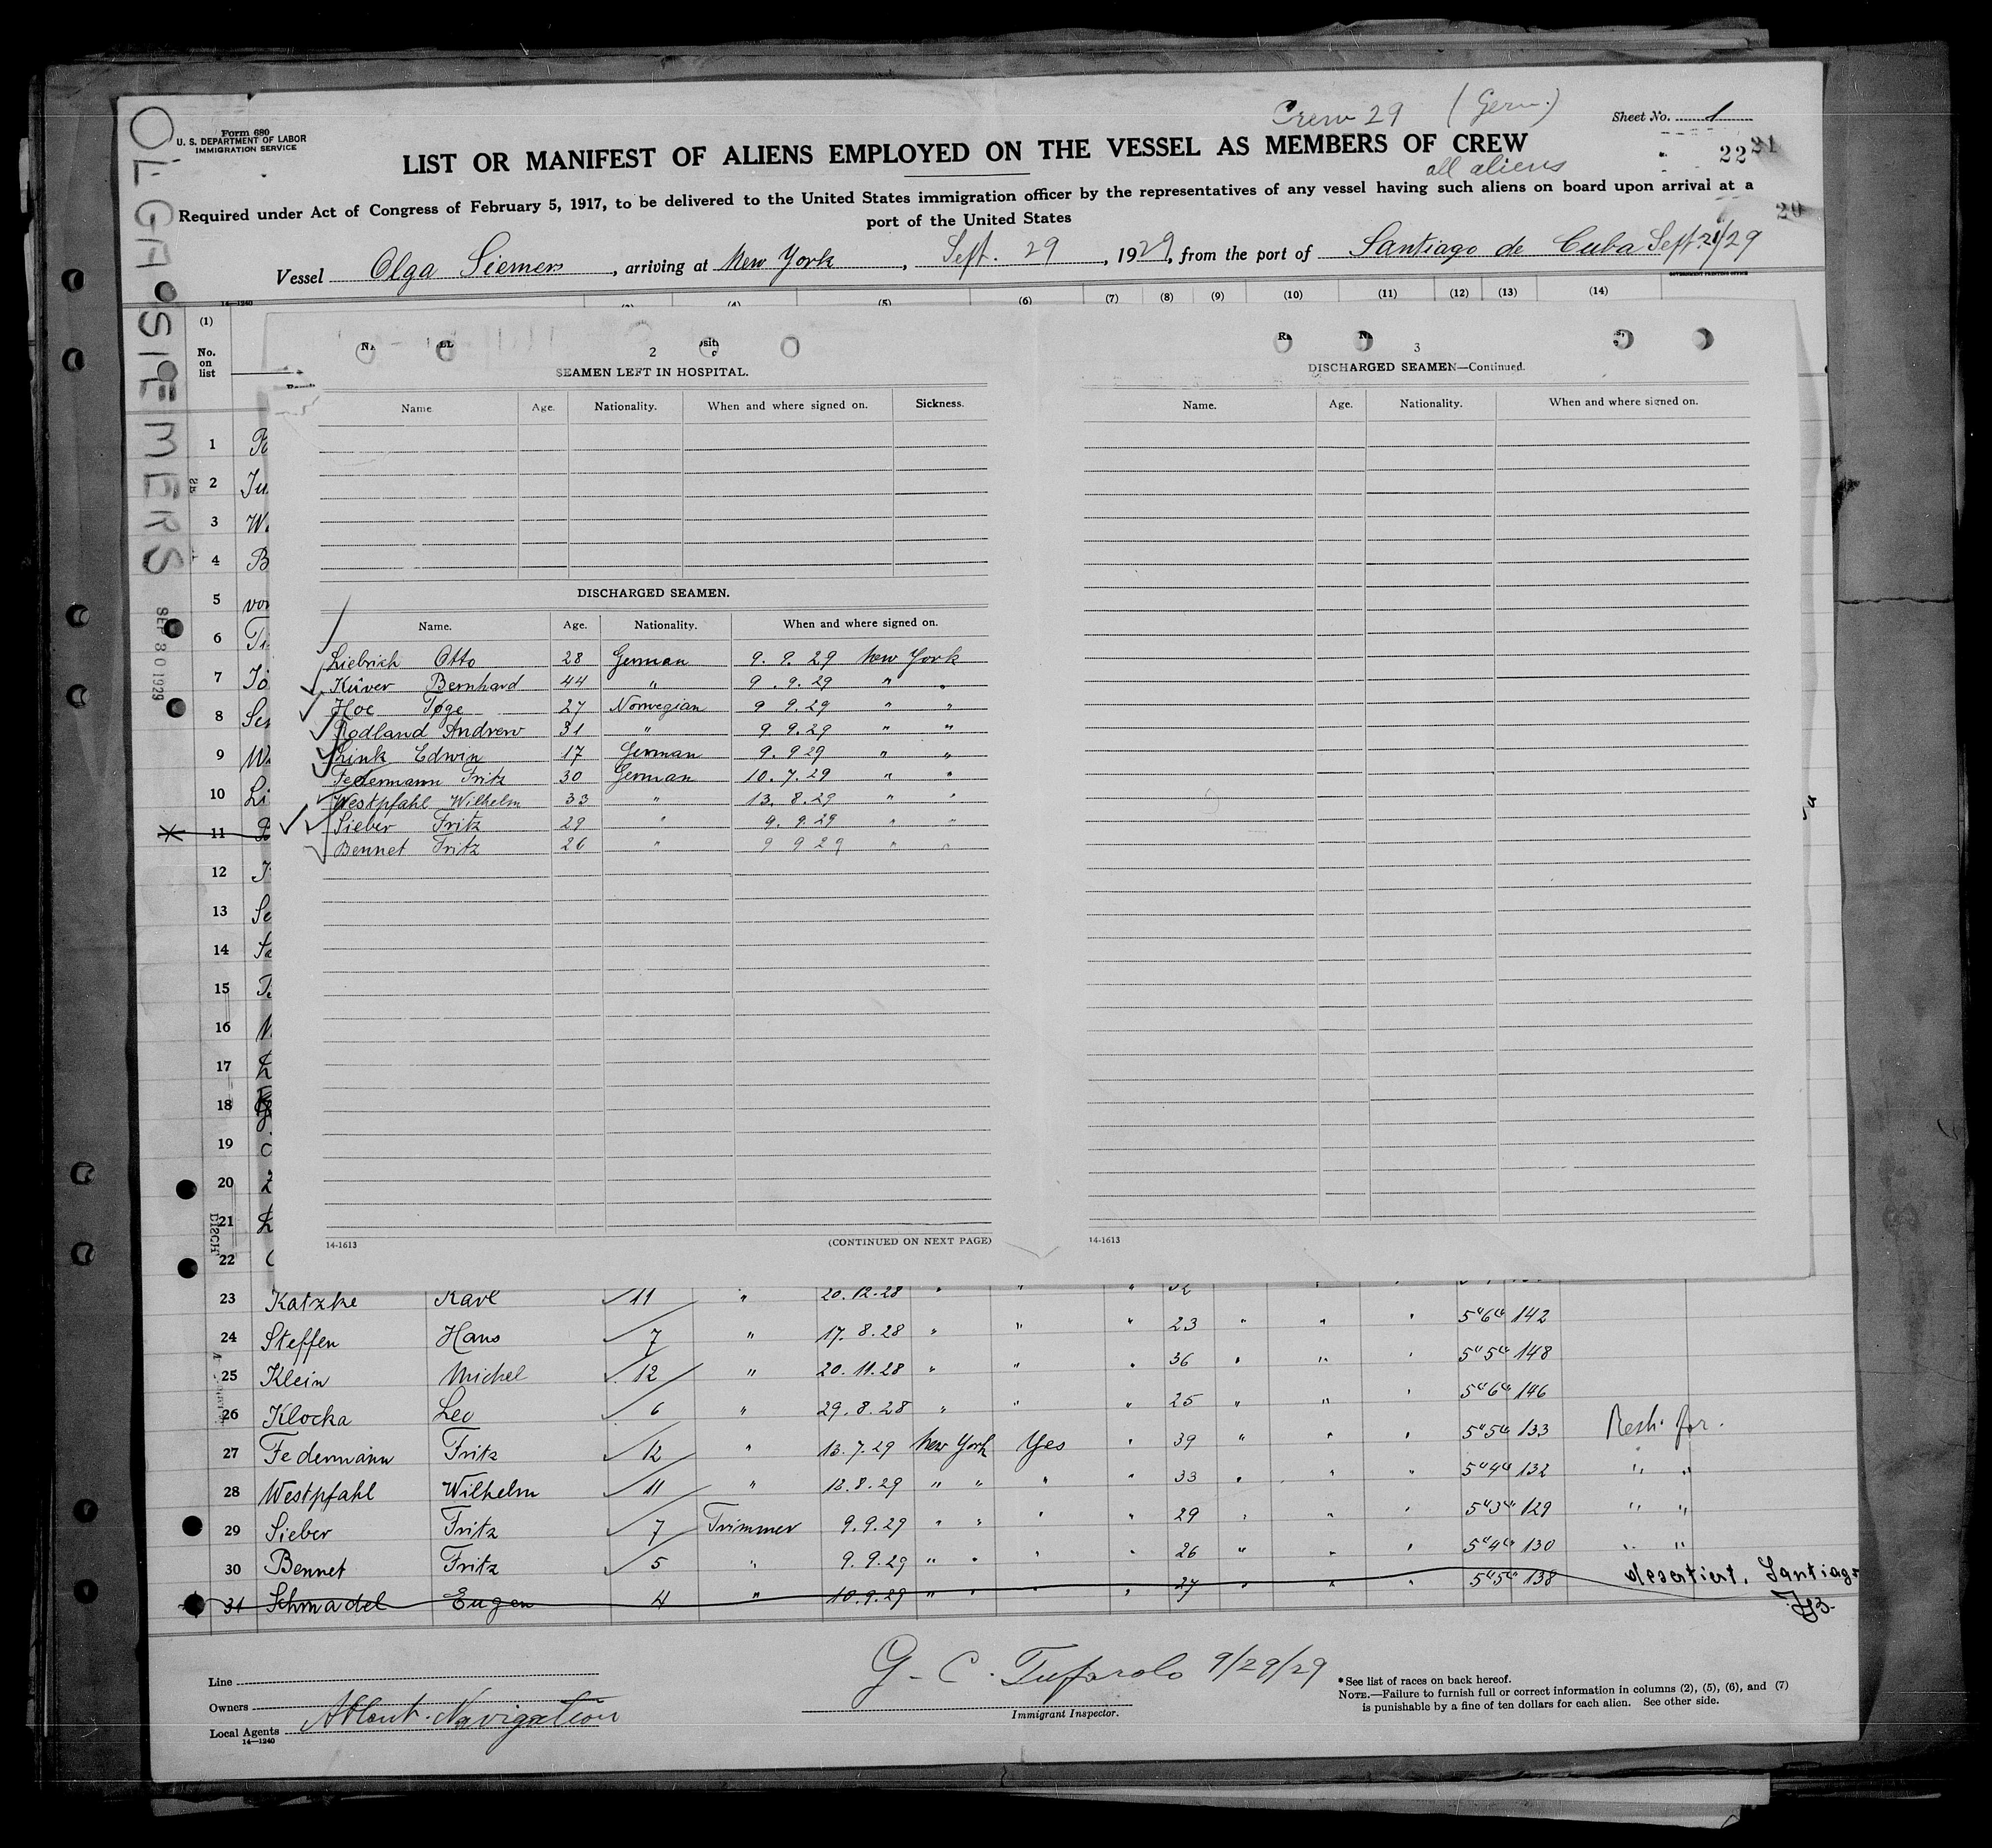 Crew 29 (Germ.)
Form 680
U. S. DEPARTMENT OF LABOR
IMMIGRATION SERVICE
Sheet No. 1
LIST OR MANIFEST OF ALIENS EMPLOYED ON THE VESSEL AS MEMBERS OF CREW
all aliens
22 21
Required under Act of Congress of February 5, 1917, to be delivered to the United States immigration officer by the representatives of any vessel having such aliens on board upon arrival at a
port of the United States
20
Vessel Olga Siemers, arriving at New York, Sept. 29, 1929, from the port of Santiago de Cuba Sept. 21/29
GOVERNMENT PRINTING OFFICE
OLGA SIEMERS
SEP 30 1929
14—1240
(1) (4) (5) (6) (7) (8) (9) (10) (11) (12) (13) (14)
No. on list
2
SEAMEN LEFT IN HOSPITAL.
Name. Age. Nationality. When and where signed on. Sickness.
DISCHARGED SEAMEN.
Name. Age. Nationality. When and where signed on.
Liebrich Otto 28 German 9. 9. 29 New York
Küver Bernhard 44 " 9. 9. 29 " "
Hoe Tøge 27 Norwegian 9 9. 29 " "
Rodland Andrew 31 " 9 9. 29 " "
Link Edwin 17 German 9. 9 29 " "
Federmann Fritz 30 German 10. 7. 29 " "
Westpfahl Wilhelm 33 " 13. 8. 29 " "
Sieber Fritz 29 " 9. 9. 29 " "
Bennet Fritz 26 " 9 9 29 " "
14-1613 (CONTINUED ON NEXT PAGE)
3
DISCHARGED SEAMEN—Continued.
Name. Age. Nationality. When and where signed on.
14-1613
1
2
3
4
5
6
7
8
9
10
11
12
13
14
15
16
17
18
19
20
21
22
23 Katzke Karl 11 " 20.12.28 " " "
24 Steffen Hans 7 " 17.8.28 " " " 23 " " " 5"6" 142
25 Klein Michel 12 " 20.11.28 " " " 36 " " " 5"5" 148
26 Klocka Leo 6 " 29.8.28 " " " 25 " " " 5"6" 146
27 Federmann Fritz 12 " 13.7.29 New York Yes " 39 " " " 5"5" 133
28 Westpfahl Wilhelm 11 " 12.8.29 " " " " 33 " " " 5"4" 132 " "
29 Sieber Fritz 7 Trimmer 9.9.29 " " " " 29 " " " 5"3" 129 " "
30 Bennet Fritz 5 " 9.9.29 " " " " 26 " " " 5"4" 130 " "
31 Schmadel Eugen 4 " 10.9.29 " " " " 27 " " " 5"5" 138 desertiert, Santiago
Line
Owners
Local Agents Atlant. Navigation
14—1240
G. C. Tufarolo 9/29/29
Immigrant Inspector.
*See list of races on back hereof.
NOTE.—Failure to furnish full or correct information in columns (2), (5), (6), and (7)
is punishable by a fine of ten dollars for each alien. See other side.